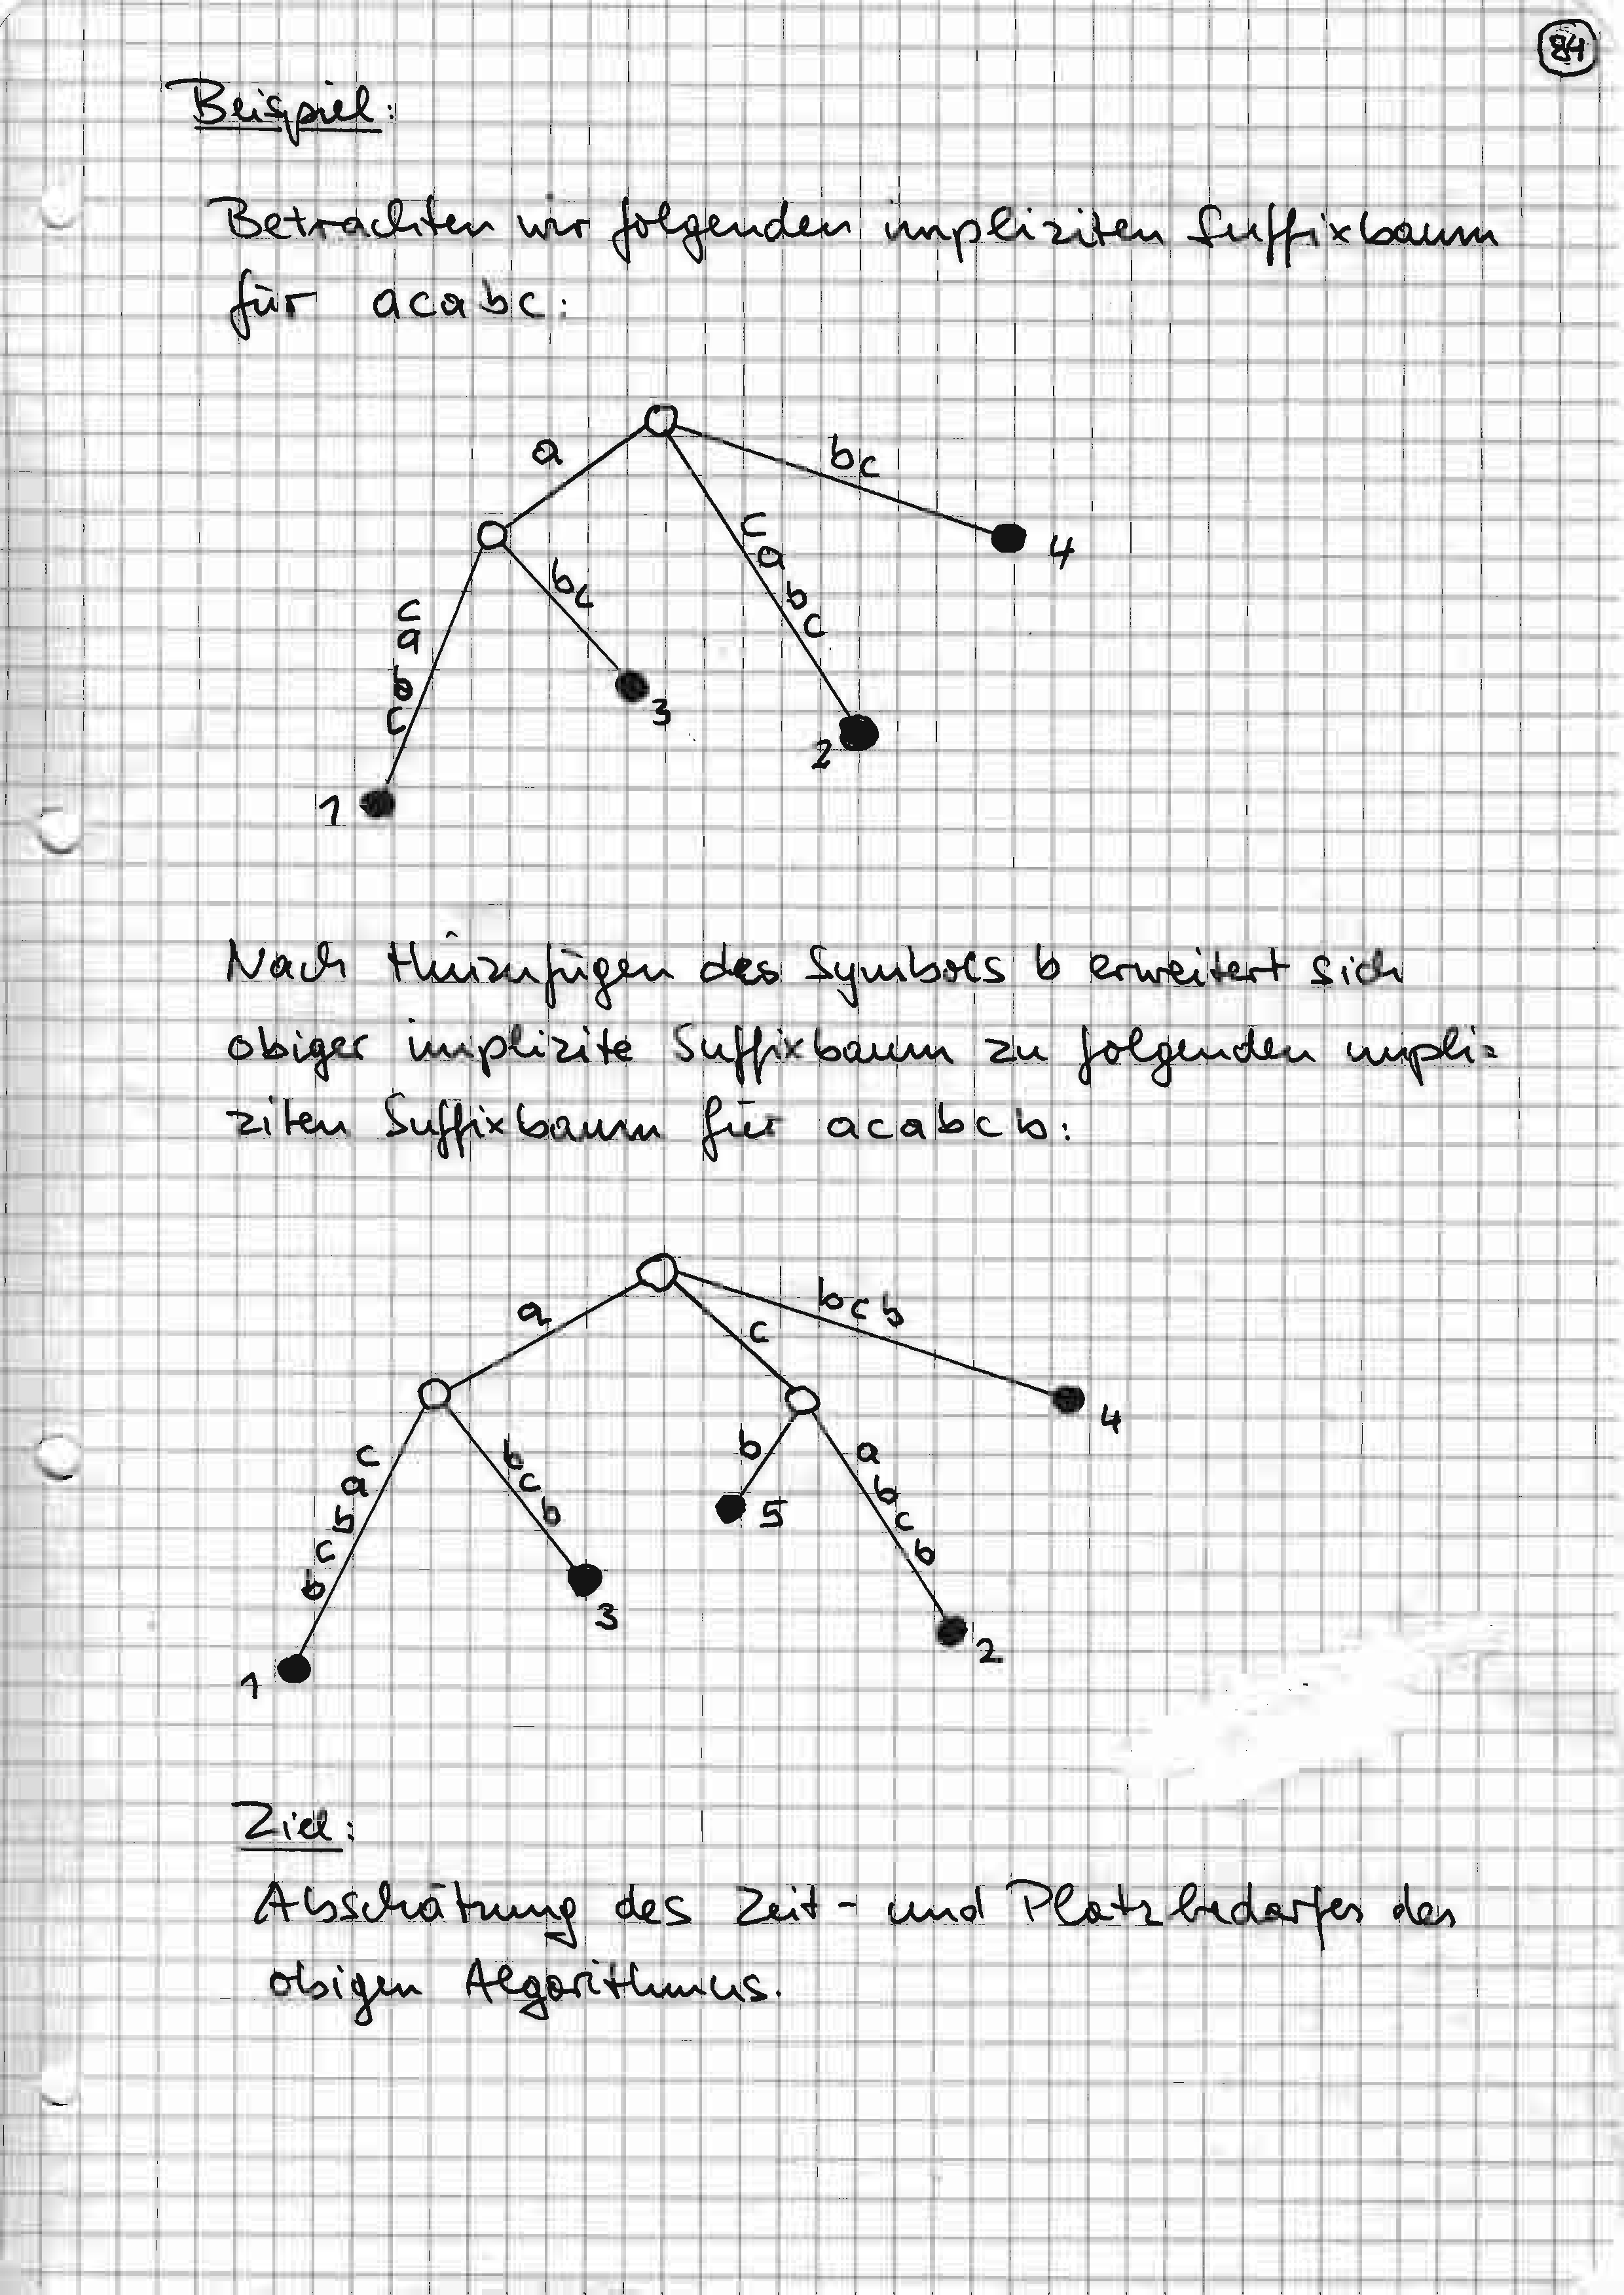 84
Beispiel:
Betrachten wir folgenden impliziten Suffixbaum
für acabc:
a
bc
c
a
b
c
4
bc
c
a
b
c
3
2
1
Nach Hinzufügen des Symbols b erweitert sich
obiger implizite Suffixbaum zu folgenden impli-
ziten Suffixbaum für acabcb:
a
c
bcb
4
c
a
b
c
b
b
c
b
b
a
b
c
b
5
3
2
1
Ziel:
Abschätzung des Zeit- und Platzbedarfes des
obigen Algorithmus.